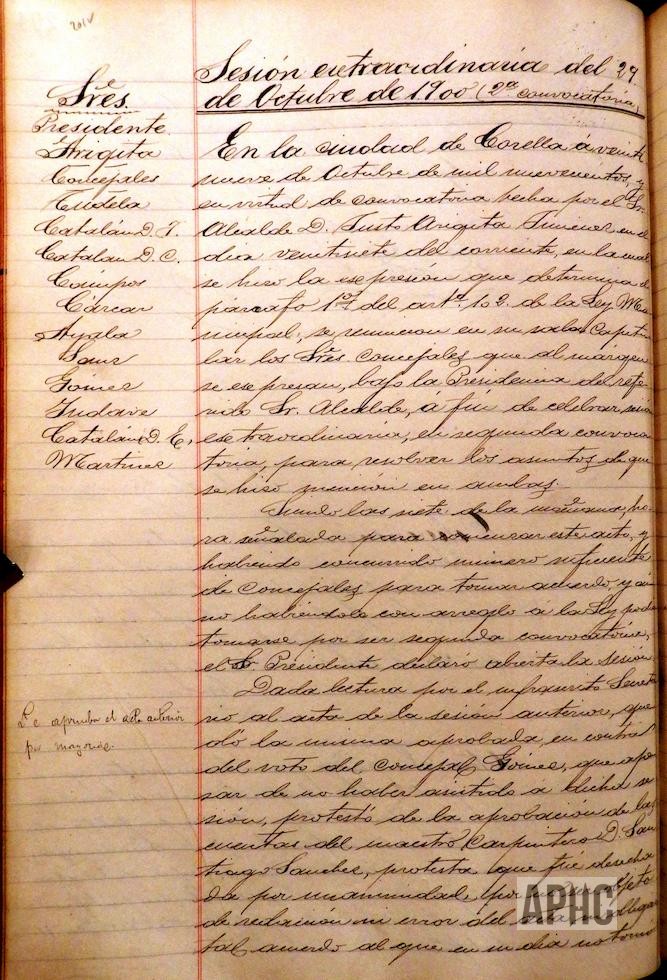 201v
Sesión extraordinaria del 29
de Octubre de 1900 (2ª convocatoria)
Sres.
Presidente
Arigita
Concejales
Tudela
Catalán D. J.
Catalan D. C.
Campos
Cárcar
Ayala
Sanz
Gómez
Indave
Catalán D. E.
Martinez
En la ciudad de Corella á veinti
nueve de Octubre de mil nuevecientos, y
en virtud de convocatoria hecha por el Sr.
Alcalde D. Justo Arigita Jimenez, en el
dia veintisiete del corriente, en la cual
se hizo la espresion que determina el
párrafo 1º del artº 102 de la Ley Mu
nicipal, se reunieron en su sala Capitu
lar los Sres Concejales que al márgen
se espresan, bajo la Presidencia del refe
rido Sr. Alcalde, á fin de celebrar sesión
extraordinaria, en segunda convoca
toria, para resolver los asuntos de que
se hizo mencion en ambas.
Siendo las siete de la mañana, ho
ra señalada para comenzar este acto, y
habiendo concurrido número suficiente
de Concejales para tomar acuerdo, y aun
no habiéndole con arreglo á la Ley podia
tomarse por ser segunda convocatoria,
el Sr. Presidente declaró abierta la sesión.
Se aprueba el acta anterior
por mayoría.
Dada lectura por el infrascrito Secreta
rio al acta de la sesión anterior, que
dó la misma aprobada, en contra
del voto del Concejal Gómez, que apé
sar de no haber asistido a dicha se
sión, protestó de la aprobación de las
cuentas del maestro Carpintero D. San
tiago Sanchez, protesta que fué desecha
da por unanimidad, por no ser objeto
de redacción ni error del acta
tal acuerdo al que en su dia no tomó
APHC